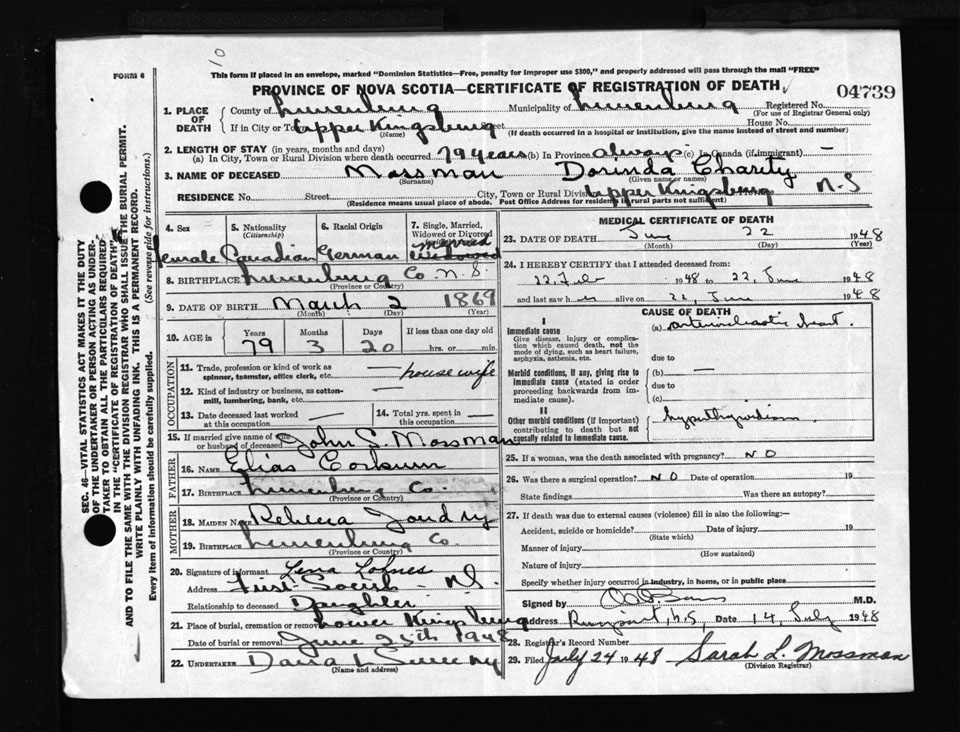 10
FORM 6
This form if placed in an envelope, marked "Dominion Statistics—Free, penalty for improper use $300," and properly addressed will pass through the mail "FREE"
PROVINCE OF NOVA SCOTIA—CERTIFICATE OF REGISTRATION OF DEATH
04739
1. PLACE OF DEATH
County of Lunenburg Municipality of Lunenburg Registered No.
(For use of Registrar General only)
If in City or Town Upper Kingsburg Street House No.
(Name) (If death occurred in a hospital or institution, give the name instead of street and number)
2. LENGTH OF STAY (in years, months and days)
(a) In City, Town or Rural Division where death occurred 79 years (b) In Province always (c) In Canada (if immigrant) —
3. NAME OF DECEASED Mossman Dorinda Charity
(Surname) (Given name or names)
RESIDENCE No. Street City, Town or Rural Division Upper Kingsburg N.S
(Residence means usual place of abode. Post Office Address for residents in rural parts not sufficient)
4. Sex 5. Nationality (Citizenship) 6. Racial Origin 7. Single, Married, Widowed or Divorced
Female Canadian German Married Widowed
8. BIRTHPLACE Lunenburg Co. N.S.
(Province or Country)
9. DATE OF BIRTH March 2 1869
(Month) (Day) (Year)
10. AGE in Years Months Days If less than one day old
79 3 20 hrs. or min.
OCCUPATION
11. Trade, profession or kind of work as spinner, teamster, office clerk, etc. — housewife
12. Kind of industry or business, as cotton-mill, lumbering, bank, etc. —
13. Date deceased last worked at this occupation —
14. Total yrs. spent in this occupation —
15. If married give name of wife or husband of deceased John S. Mossman
FATHER
16. NAME Elias Corkum
17. BIRTHPLACE Lunenburg Co.
(Province or Country)
MOTHER
18. MAIDEN NAME Rebecca Joudry
19. BIRTHPLACE Lunenburg Co.
(Province or Country)
20. Signature of informant Lena Lohnes
Address First South - N.S.
Relationship to deceased Daughter
21. Place of burial, cremation or removal Lower Kingsburg
Date of burial or removal June 25th 1948
22. UNDERTAKER Sweeny
(Name and address)
MEDICAL CERTIFICATE OF DEATH
23. DATE OF DEATH June 22 1948
(Month) (Day) (Year)
24. I HEREBY CERTIFY that I attended deceased from:
22, Feb 1948 to 22, June 1948
and last saw her alive on 22, June 1948
CAUSE OF DEATH
I
Immediate cause
Give disease, injury or complication which caused death, not the mode of dying, such as heart failure, asphyxia, asthenia, etc.
(a) heart.
due to
Morbid conditions, if any, giving rise to immediate cause (stated in order proceeding backwards from immediate cause).
(b) —
due to
(c)
II
Other morbid conditions (if important) contributing to death but not causally related to immediate cause.
hyperthyroidism
25. If a woman, was the death associated with pregnancy? NO
26. Was there a surgical operation? NO Date of operation 19
State findings Was there an autopsy?
27. If death was due to external causes (violence) fill in also the following:—
Accident, suicide or homicide? Date of injury 19
(State which)
Manner of injury
(How sustained)
Nature of injury
Specify whether injury occurred in industry, in home, or in public place
Signed by M.D.
Address Riverport, N.S, Date 14, July 1948
28. Registrar's Record Number
29. Filed July 24 1948 Sarah L. Mossman
(Division Registrar)
SEC. 46—VITAL STATISTICS ACT MAKES IT THE DUTY
OF THE UNDERTAKER OR PERSON ACTING AS UNDER-
TAKER TO OBTAIN ALL THE PARTICULARS REQUIRED
IN THE "CERTIFICATE OF REGISTRATION OF DEATH"
AND TO FILE THE SAME WITH THE DIVISION REGISTRAR WHO SHALL ISSUE THE BURIAL PERMIT.
WRITE PLAINLY WITH UNFADING INK. THIS IS A PERMANENT RECORD.
Every item of information should be carefully supplied. (See reverse side for instructions.)